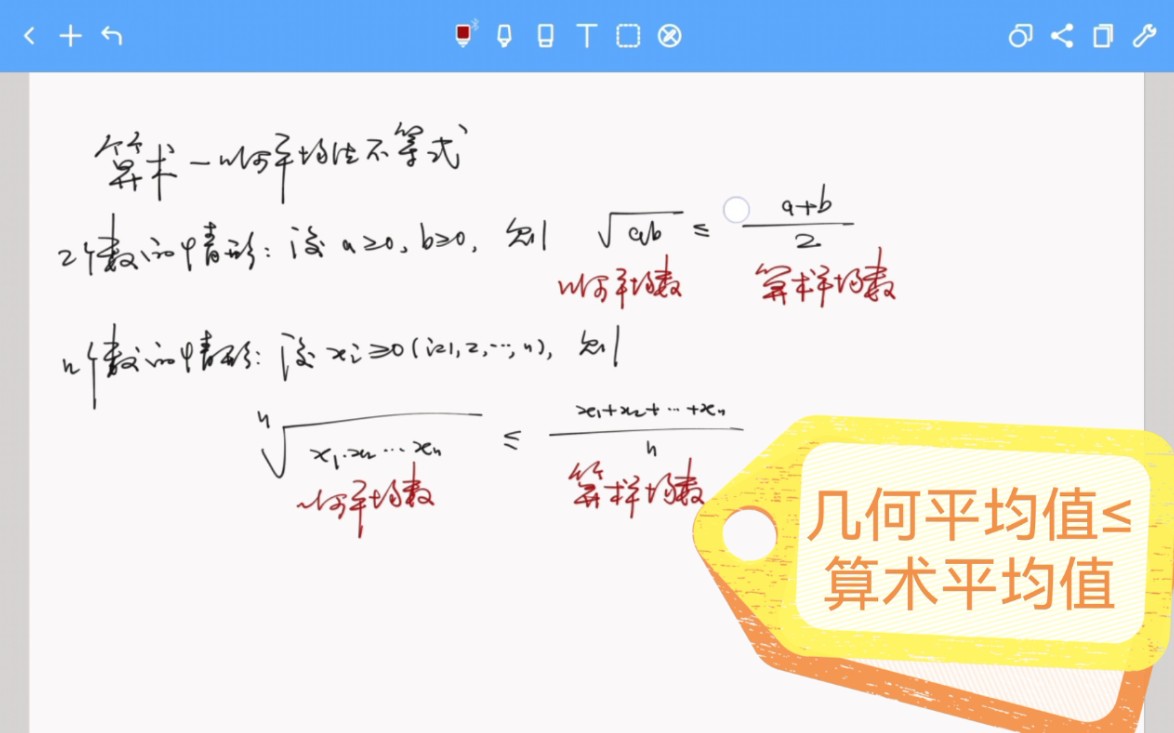 算术-几何平均值不等式
2个数的情形：设 a≥0, b≥0, 则 √ab ≤ (a+b)/2
几何平均数 算术平均数
n个数的情形：设 xi≥0 (i=1,2,…,n), 则
ⁿ√(x₁·x₂…xₙ) ≤ (x₁+x₂+…+xₙ)/n
几何平均数 算术平均数
几何平均值≤
算术平均值